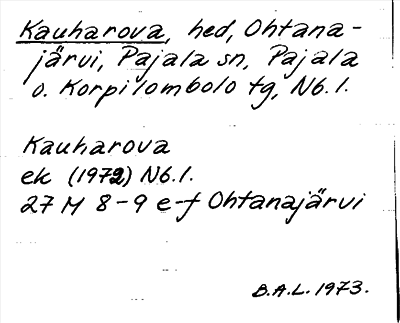 Kauharova, hed, Ohtana-
järvi, Pajala sn, Pajala
o. Korpilombolo tg, Nb. l.
Kauharova
ek (1972) Nb. l.
27 M 8-9 e-f Ohtanajärvi
B.A.L. 1973.